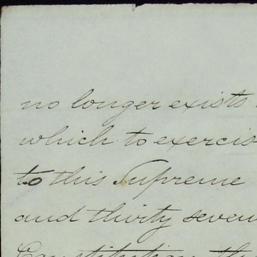 no longer exists
which to exercise
to this Supreme
and thirty seven
Constitution the